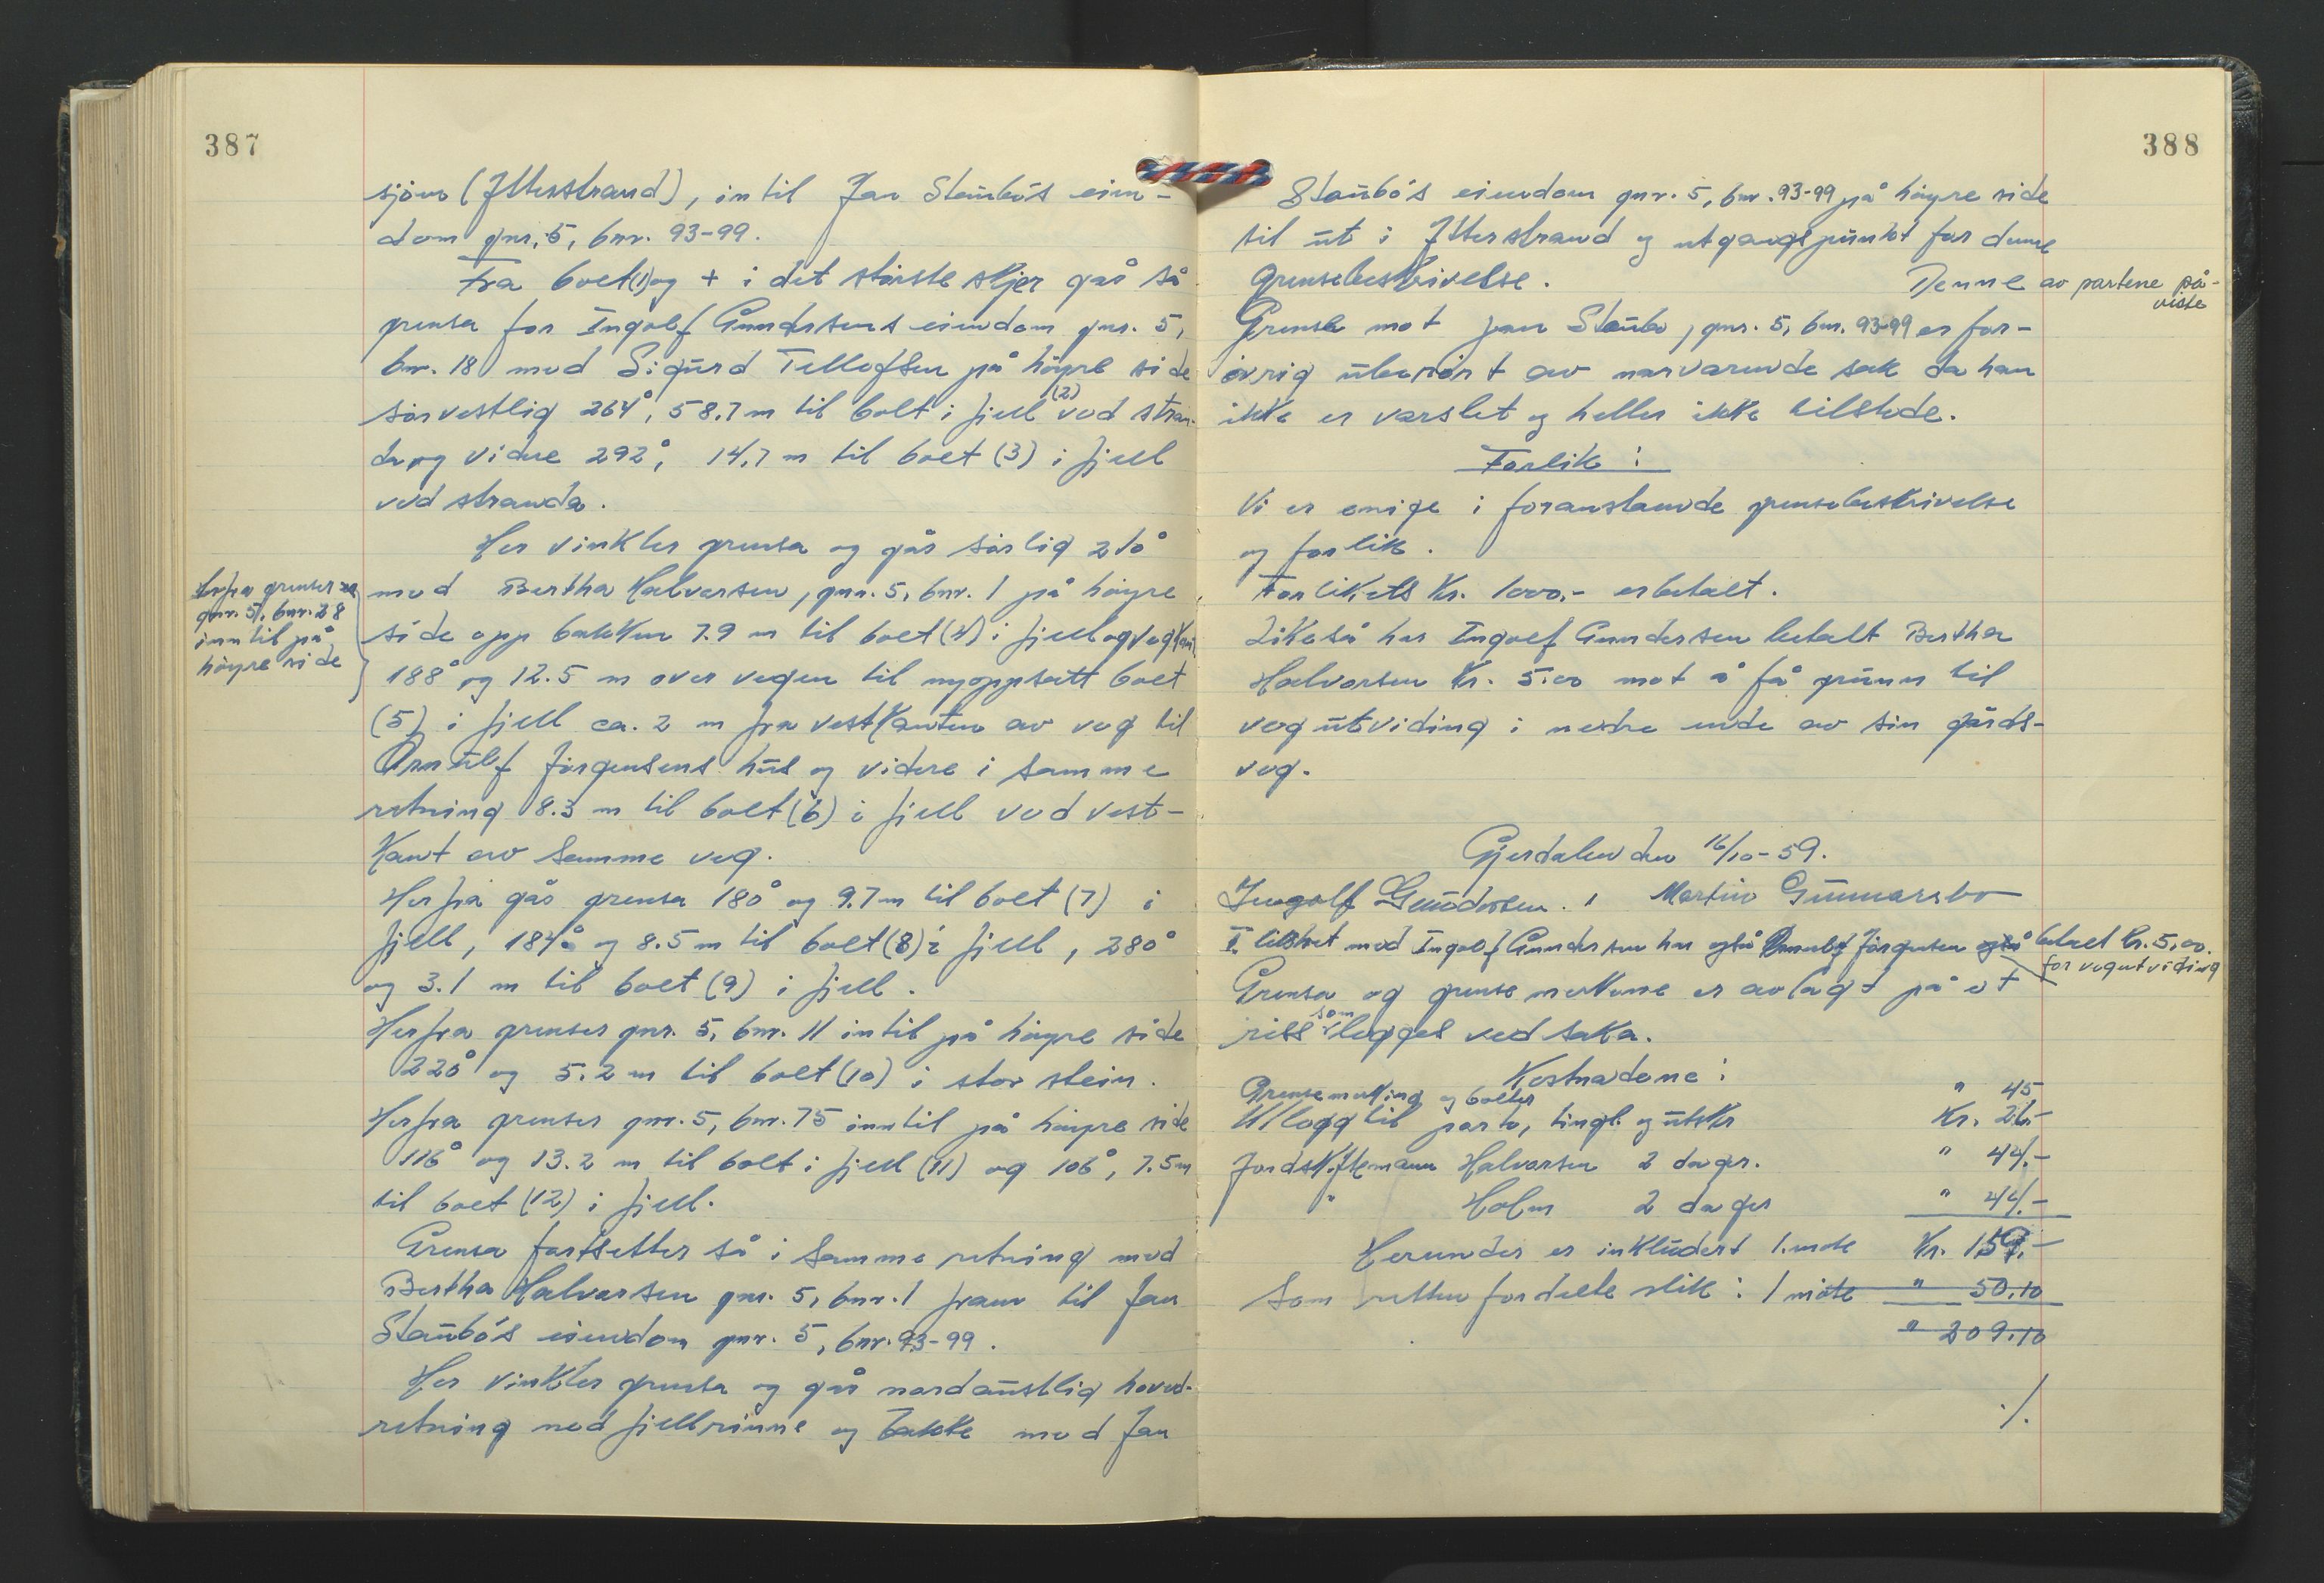 387
sjøen (Ytterstrand), intil Jan Staubö's eien-
dom gnr. 5, bnr. 93-99.
Fra bolt (1) og + i det største skjer går så
grensa for Ingolf Gundersens eiendom gnr. 5,
bnr. 18 med Sigurd Tellefsen på høyre side
sørvestlig 264°, 58.7 m til bolt i fjell (2) ved stran-
da og videre 292°, 14.7 m til bolt (3) i fjell
ved stranda.
Her vinkler grensa og går sørlig 210°
med Bertha Halvorsen, gnr. 5, bnr. 1 på høyre
side opp bakken 7.9 m til bolt (4) i fjell og vegkant
188° og 12.5 m over vegen til nyoppsatt bolt
(5) i fjell ca. 2 m fra vestkanten av veg til
Arnulf Jørgensens hus og videre i samme
retning 8.3 m til bolt (6) i fjell ved vest-
kant av samme veg.
Herfra går grensa 180° og 9.7 m til bolt (7) i
fjell, 184° og 8.5 m til bolt (8) i fjell, 280°
og 3.1 m til bolt (9) i fjell.
Herfra grenser gnr. 5, bnr. 11 intil på høyre side
220° og 5.2 m til bolt (10) i stor stein.
Herfra grenser gnr. 5, bnr. 75 inntil på høyre side
116° og 13.2 m til bolt i fjell (11) og 106°, 7.5 m
til bolt (12) i fjell.
Grensa fortsetter så i samme retning med
Bertha Halvorsen gnr. 5, bnr. 1 fram til Jan
Staubö's eiendom gnr. 5, bnr. 93-99.
Her vinkler grensa og går nordaustlig hoved-
retning ned fjellrinne og bakke med Jan
Herfra grenser
gnr. 5, bnr. 28
inntil på
høyre side
388
Staubö's eiendom gnr. 5, bnr. 93-99 på høyre side
til ut i Ytterstrand og utgangspunktet for denne
grensebeskrivelse. Denne av partene på-
viste
Grense mot Jan Staubö, gnr. 5, bnr. 93-99 er for-
øvrig uberørt av nærværende sak da han
ikke er varslet og heller ikke tilstede.
Forlik:
Vi er enige i foranstaende grensebeskrivelse
og forlik.
Forlikets kr. 1000,- er betalt.
Likeså har Ingolf Gundersen betalt Bertha
Halvorsen kr. 5.00 mot å få grunn til
vegutviding i nedre ende av sin gårds-
veg.
Gjerdalen den 16/10-59.
Ingolf Gundersen. Martin Gunnarsbo
I likhet med Ingolf Gundersen har også Arnulf Jørgensen også betalt kr. 5,00.
for vegutviding
Grensa og grensemerkene er avlagt på et
riss som legges ved saka.
Kostnadene:
Grensemerking og bolter " 45
Utlegg til porto, tingl. og utskr Kr. 26.-
Jordskiftemann Halvorsen 2 dager. " 44.-
" Holm 2 dager " 44.-
Herunder er inkludert 1. møte Kr. 159.-
Som retten fordeler slik: 1 møte " 50.10
" 209.10
./.